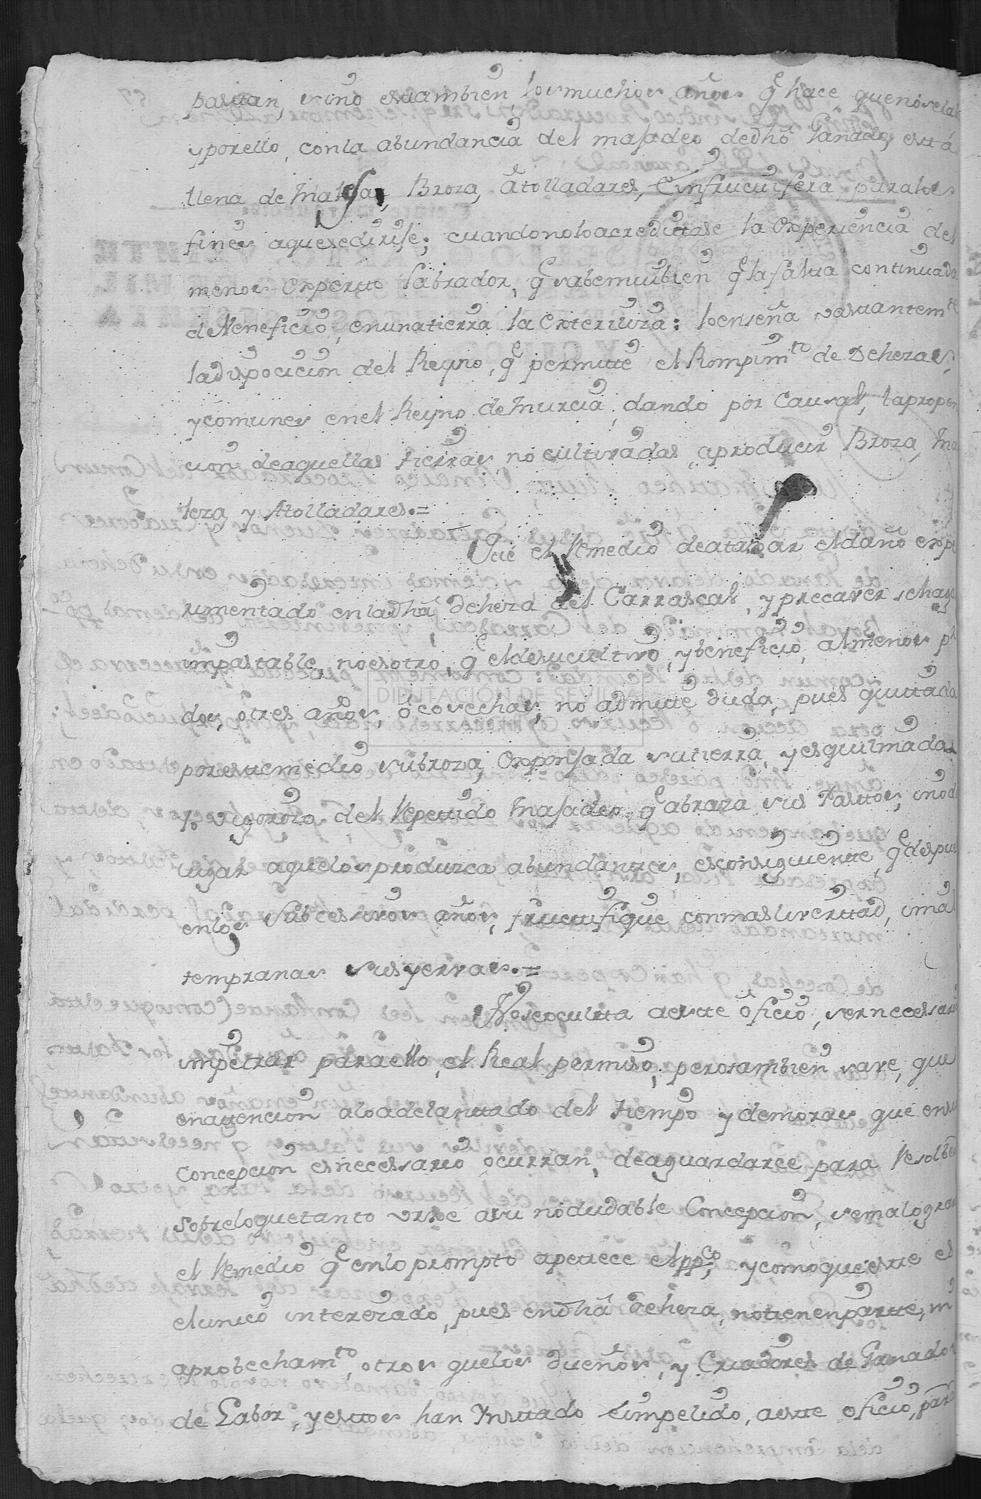 pastan, sino estambien, los muchos años q̃ hace que no se la
y por ello, con la abundancia del masadeo de dho Ganado, está
llena de Maleza, Broza, Atolladares, é infructifera, para los
fines aque se dirise; cuando no lo acreditase la Experiencia del
menos Experto labrador, q̃ sabe mui bien q̃ la falta continuada
de Veneficio, en una tierra la Exteriliza: lo enseña vastantemte
la disposicion del Reyno, q̃ permite el Rompimto de Dehezas,
y comunes en el Reyno de Murcia, dando por Causal, la propen
cion de aquellas tierras, no cultivadas, aproducir Broza, Ma
leza, y Atolladares.=
Que el Remedio de atajar el daño espe
rimentado en la dha Deheza del Carrascal, y precaver se haga
impastable, no es otro, q̃ el de su cultivo, y beneficio, al menos pr
dos, ó tres años, ó cosechas, no admite duda, pues quitada
por este medio su broza, Esponjada su tierra, y esquilmada
lo vigoroso del Repetido Masadeo, q̃ abraza sus Pastos, in od
ugar aquelos produzca abundantes, es consiguiente, q̃ despues
en los subcessivos años, fructifique con mas livertad, i mas
tempranas sus yervas.=
No se oculta a este oficio, ser necesario
impetrar para ello, el Real permiso; pero tambien save, que
en atencion alo adelantado del tiempo y demoras que en su
Concepcion es necessario ocurran, de aguardarce para Resolber
sobre lo que tanto urje asu nodudable Concepcion, se malogra
el Remedio q̃ en lo prompto apetece el ppco, y como que este es
el unico interezado, pues en dha Deheza, no tienen parte, ni
aprobechamto otros que los Dueños, y Criadores de Ganados
de Labor, y estos han Ynstado é impelido, a este oficio, para
DIPUTACIÓN DE SEVILLA